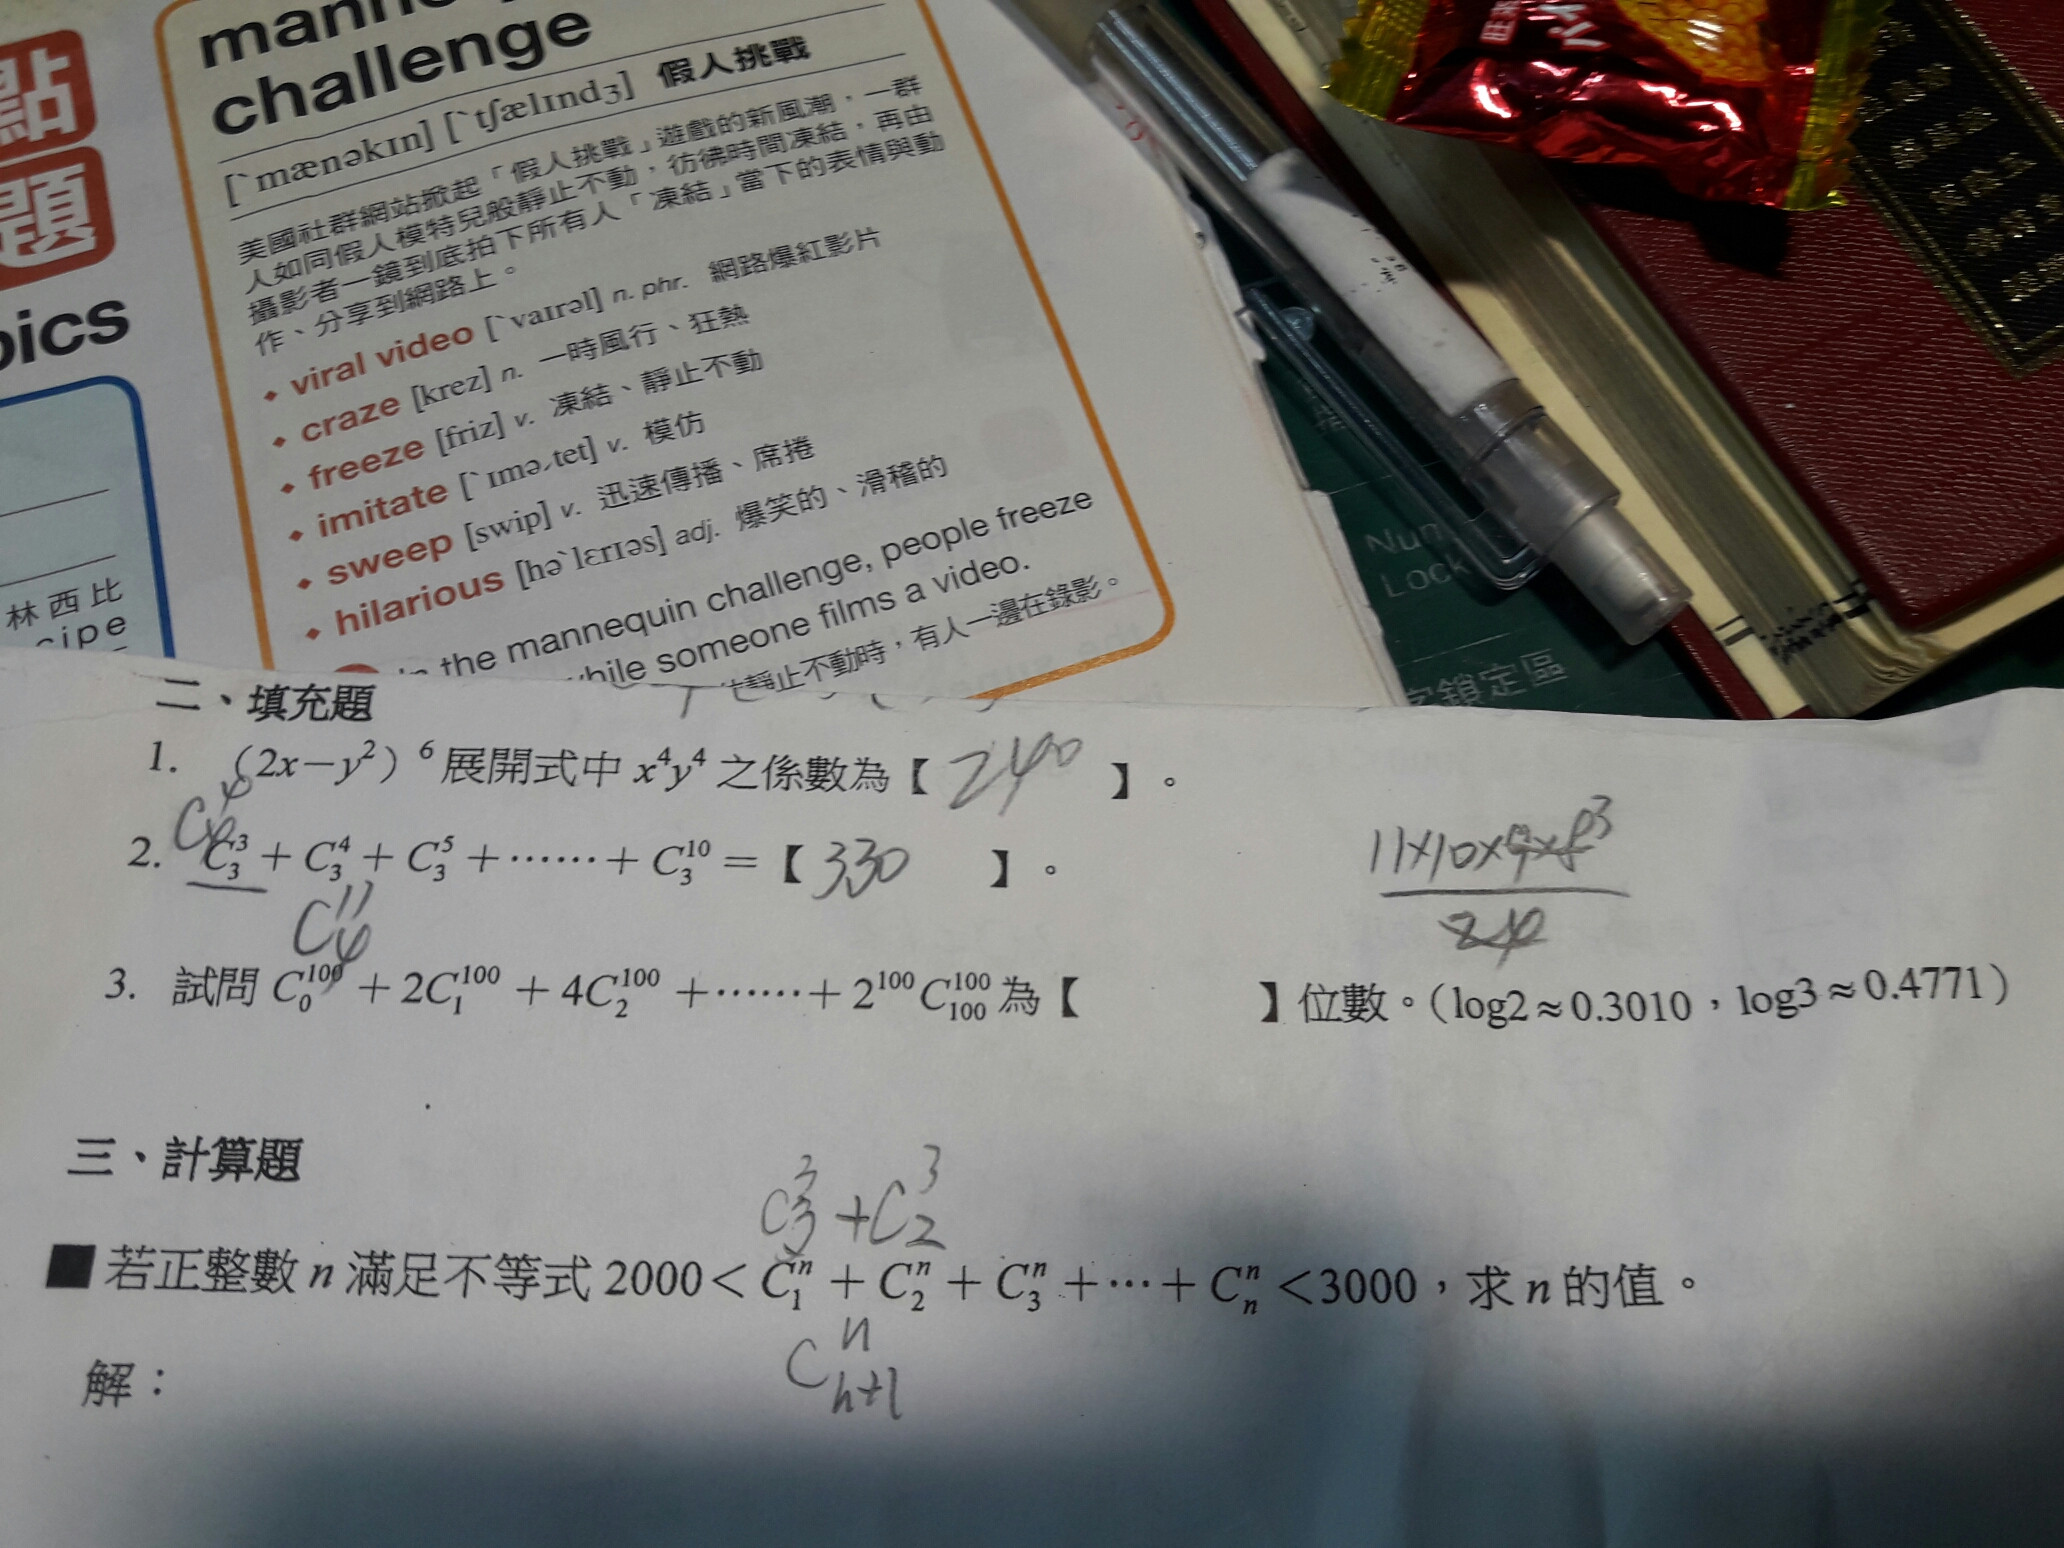 點
題
pics
林西比
cipe
challenge
[ˋmænəkɪn] [ˋtʃælɪndʒ] 假人挑戰
美國社群網站掀起「假人挑戰」遊戲的新風潮，一群
人如同假人模特兒般靜止不動，彷彿時間凍結，再由
攝影者一鏡到底拍下所有人「凍結」當下的表情與動
作、分享到網路上。
• viral video [ˋvaɪrəl] n. phr. 網路爆紅影片
• craze [krez] n. 一時風行、狂熱
• freeze [friz] v. 凍結、靜止不動
• imitate [ˋɪmə͵tet] v. 模仿
• sweep [swip] v. 迅速傳播、席捲
• hilarious [həˋlɛrɪəs] adj. 爆笑的、滑稽的
in the mannequin challenge, people freeze
while someone films a video.
靜止不動時，有人一邊在錄影。
Num
Lock
鎖定區
二、填充題
1. (2x－y²)⁶展開式中 x⁴y⁴ 之係數為【 240 】。
C₄⁴
2. C₃³＋C₃⁴＋C₃⁵＋……＋C₃¹⁰＝【 330 】。
C₄¹¹
11×10×9×8 3
24
3. 試問 C₀¹⁰⁰＋2C₁¹⁰⁰＋4C₂¹⁰⁰＋……＋2¹⁰⁰C₁₀₀¹⁰⁰ 為【 】位數。(log2≈0.3010，log3≈0.4771)
三、計算題
C₃³+C₂³
■若正整數 n 滿足不等式 2000＜C₁ⁿ＋C₂ⁿ＋C₃ⁿ＋…＋Cₙⁿ＜3000，求 n 的值。
Cₙ₊₁ⁿ
解：